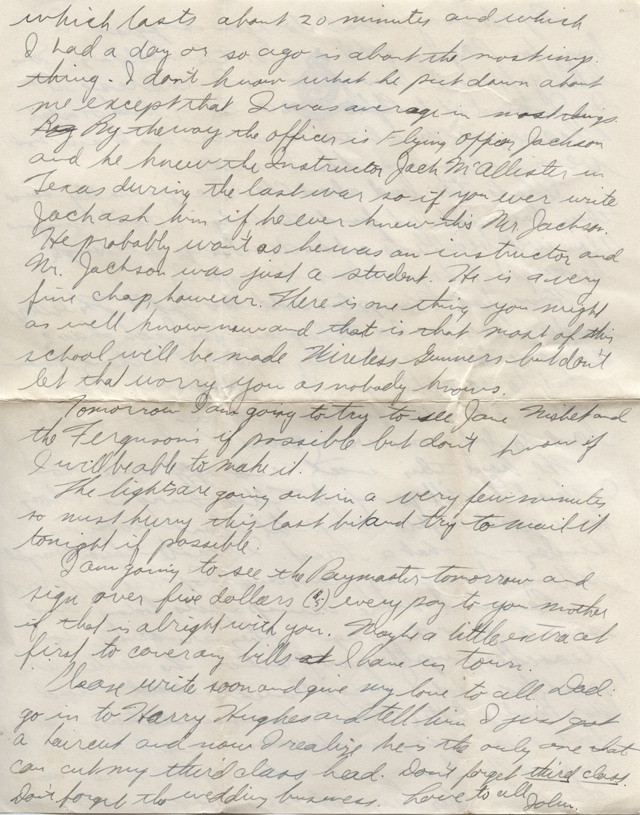 which lasts about 20 minutes and which
I had a day or so ago is about the most imp.
thing. I don't know what he put down about
me except that I was average in most things.
By the way the officer is Flying officer Jackson
and he knew the Instructor Jack McAllister in
Texas during the last war so if you ever write
Jack ask him if he ever knew this Mr. Jackson.
He probably won't as he was an instructor and
Mr. Jackson was just a student. He is a very
fine chap, however. There is one thing you might
as well know now and that is that most of this
school will be made Wireless Gunners but don't
let that worry you as nobody knows.
Tomorrow I am going to try to see Jane Nisbet and
the Ferguson's if possible but don't know if
I will be able to make it.
The lights are going out in a very few minutes
so must hurry this last bit and try to mail it
tonight if possible.
I am going to see the Paymaster tomorrow and
sign over five dollars ($5) every pay to you mother
if that is alright with you. Maybe a little extra at
first to cover any bills I have in town.
Please write soon and give my love to all. Dad:
go in to Harry Hughes and tell him I just got
a haircut and now I realize he is the only one that
can cut my third class head. Don't forget third class.
Don't forget the wedding business. Love to all John.